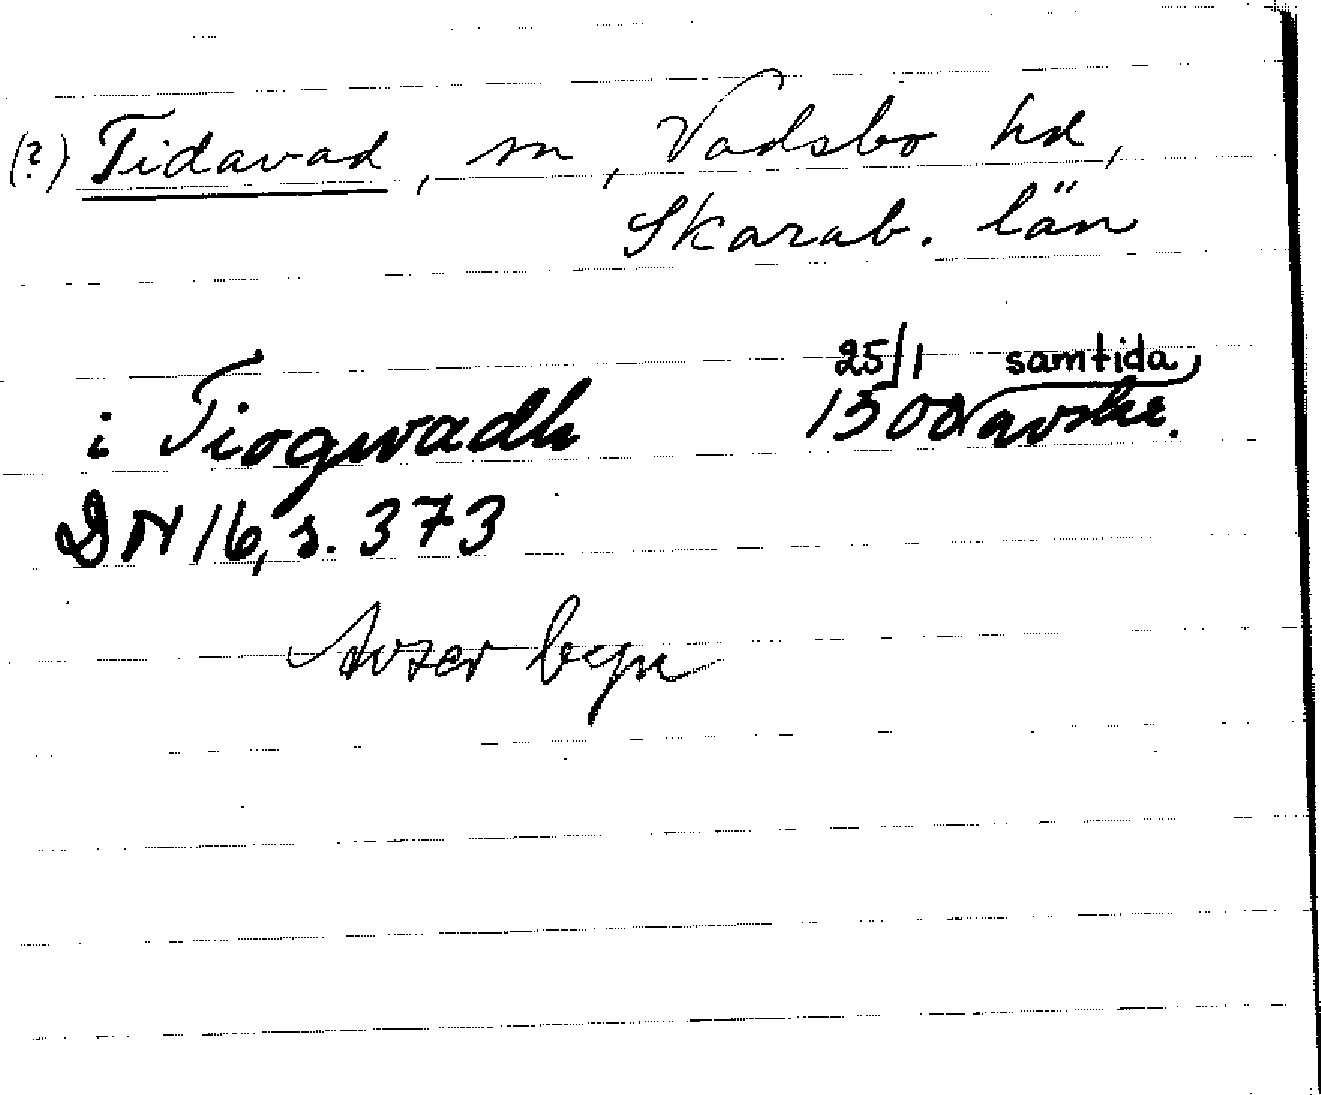 (?) Tidavad, sn, Vadsbo hd,
Skarab. län
i Tiogwadh 25/1 1500 samtida avskr.
DN 16, s. 373
Avser byn